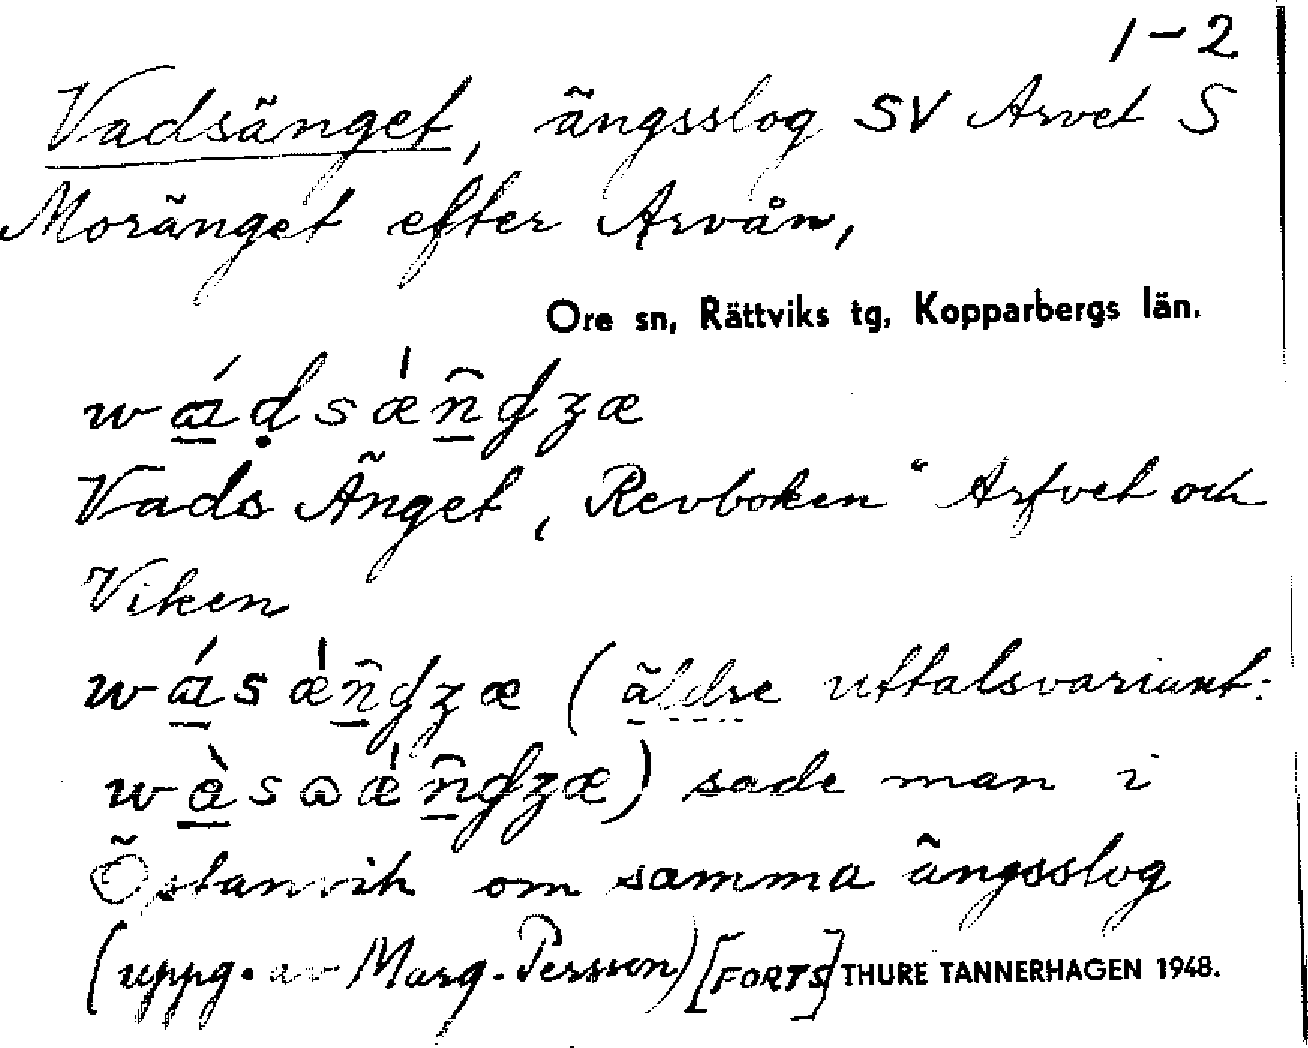 1-2
Vadsänget, ängsslog SV Arvet S
Moränget efter Arvån,
Ore sn, Rättviks tg, Kopparbergs län.
Vads Änget, "Revboken" Arfvet och
Viken
(äldre uttalsvariant:
) sade man i
Östanvik om samma ängsslog
(uppg. av Marg. Persson) [FORTS] THURE TANNERHAGEN 1948.